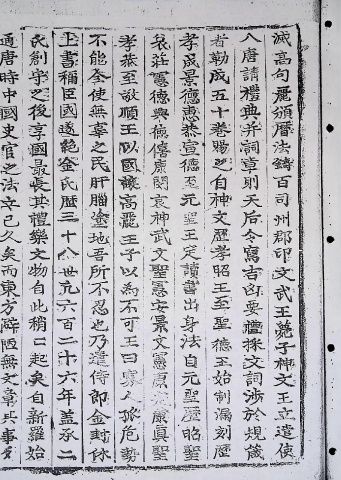 滅高句麗頒曆法鑄百司州郡印文武王薨子神文王立遣使
入唐請禮典并詞章則天后令寫吉凶要禮採文詞涉於規箴
者勒成五十卷賜之自神文歷孝昭王至聖德王始制漏刻歷
孝成景德惠恭宣德至元聖王定讀書出身法自元聖歷昭聖
哀莊憲德興德僖康閔哀神武文聖憲安景文憲康定康眞聖
孝恭至敬順王以國讓高麗王子以爲不可王曰寡人孤危勢
不能全使無辜之民肝腦塗地吾所不忍也乃遣侍郎金封休
上書稱臣國遂絶金氏歷三十八世凡六百二十六年盖承二
氏創守之後享國最長其禮樂文物自此稍稍起矣自新羅始
通唐時中國史官之法立已久矣而東方僻陋無文章共事多